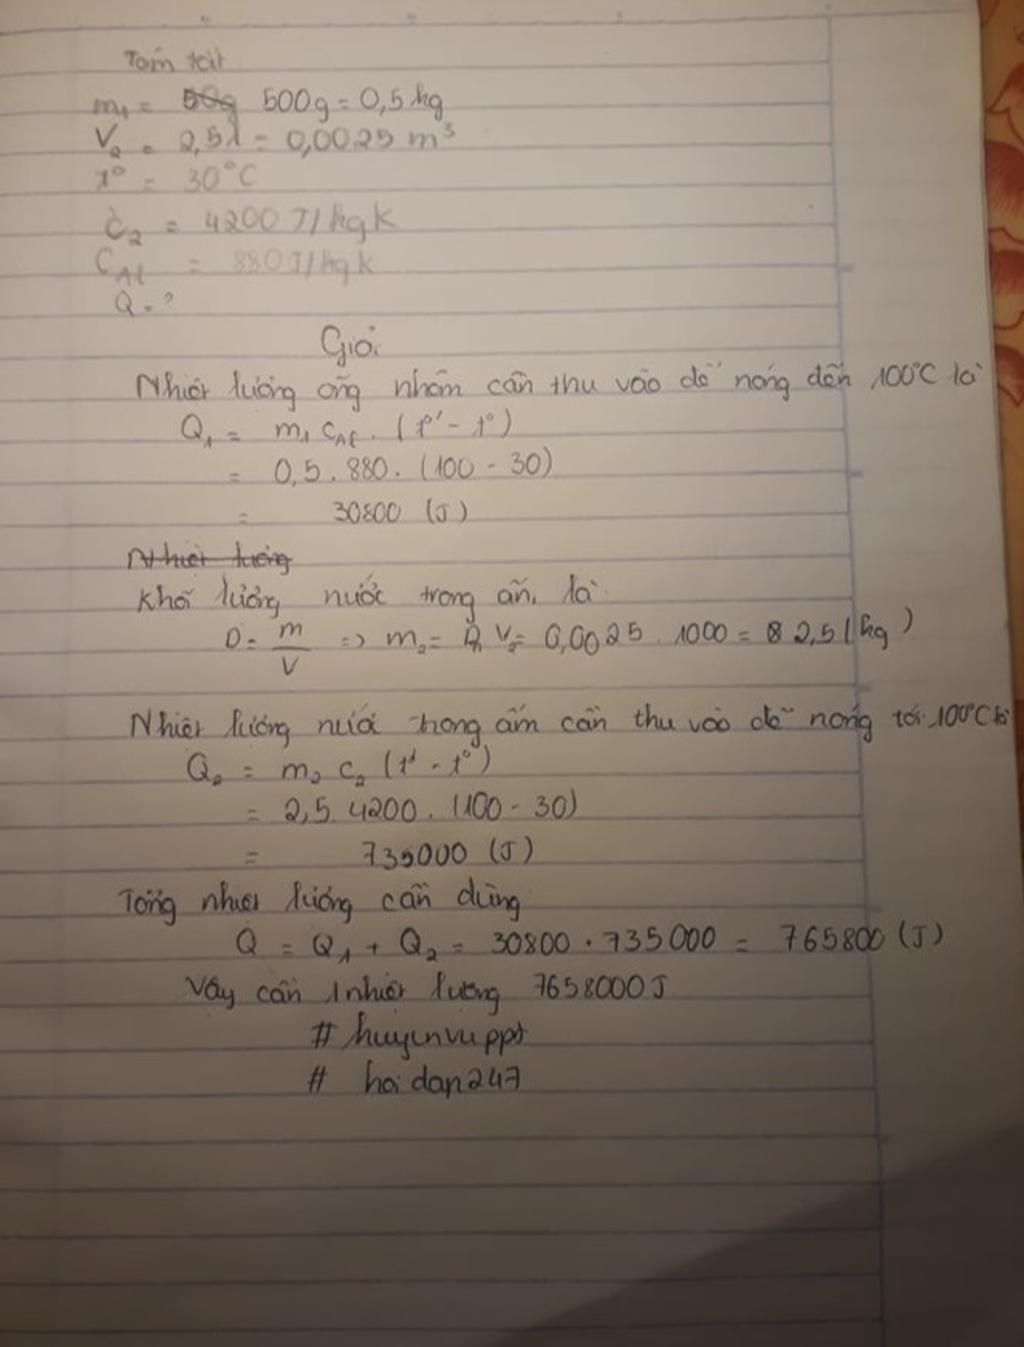 Tóm tắt
m₁ = 50g 500g = 0,5 kg
V₂ = 2,5l = 0,0025 m³
t° = 30°C
C₂ = 4200 J/kgk
C_Al = 880 J/kgk
Q = ?
Giải
Nhiệt lượng ống nhôm cần thu vào để nóng đến 100°C là
Q₁ = m₁ C_Al . (t°' - t°)
= 0,5 . 880 . (100 - 30)
= 30800 (J)
Nhiệt lượng
Khối lượng nước trong ấm là
D = m/V => m₂ = D. V₂ = 0,0025 . 1000 = 2,5 (kg)
Nhiệt lượng nước trong ấm cần thu vào để nóng tới 100°C là
Q₂ = m₂ c₂ (t' - t°)
= 2,5 4200 . (100 - 30)
= 735000 (J)
Tổng nhiệt lượng cần dùng
Q = Q₁ + Q₂ = 30800 + 735000 = 765800 (J)
Vậy cần 1 nhiệt lượng 7658000 J
# huyenvuppt
# hoidap247